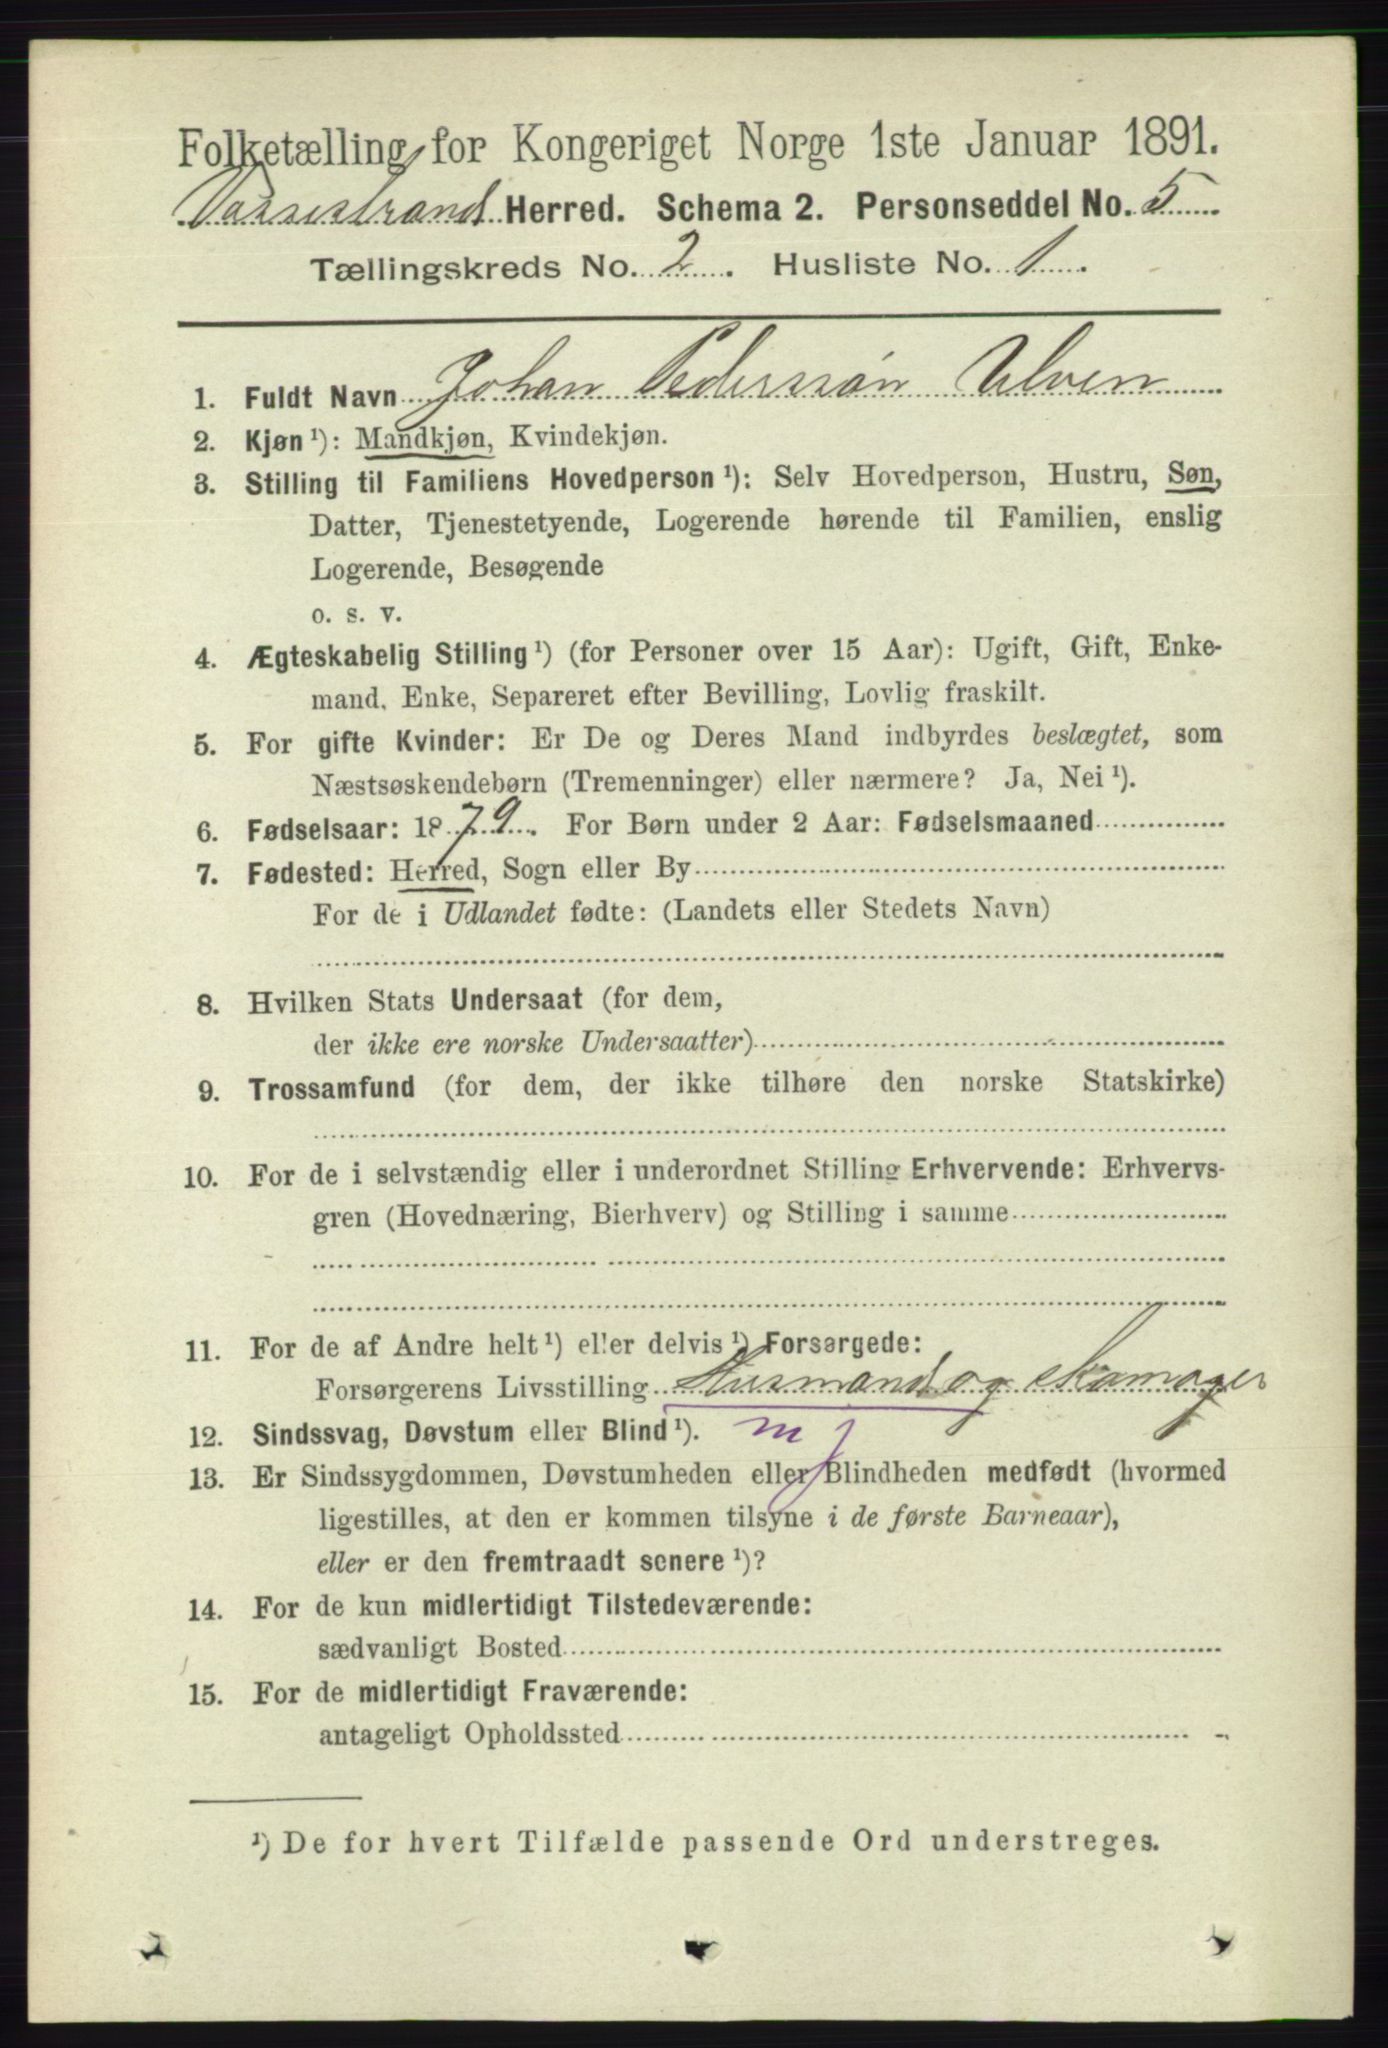 Folketælling for Kongeriget Norge 1ste Januar 1891.
Vossestrand Herred. Schema 2. Personseddel No. 5
Tællingskreds No. 2. Husliste No. 1.
1. Fuldt Navn Johan Pederssøn Ulven
2. Kjøn ¹): Mandkjøn, Kvindekjøn.
3. Stilling til Familiens Hovedperson ¹): Selv Hovedperson, Hustru, Søn,
Datter, Tjenestetyende, Logerende hørende til Familien, enslig
Logerende, Besøgende
o. s. v.
4. Ægteskabelig Stilling ¹) (for Personer over 15 Aar): Ugift, Gift, Enke-
mand, Enke, Separeret efter Bevilling, Lovlig fraskilt.
5. For gifte Kvinder: Er De og Deres Mand indbyrdes beslægtet, som
Næstsøskendebørn (Tremenninger) eller nærmere? Ja, Nei ¹).
6. Fødselsaar: 1879. For Børn under 2 Aar: Fødselsmaaned
7. Fødested: Herred, Sogn eller By
For de i Udlandet fødte: (Landets eller Stedets Navn)
8. Hvilken Stats Undersaat (for dem,
der ikke ere norske Undersaatter)
9. Trossamfund (for dem, der ikke tilhøre den norske Statskirke)
10. For de i selvstændig eller i underordnet Stilling Erhvervende: Erhvervs-
gren (Hovednæring, Bierhverv) og Stilling i samme
11. For de af Andre helt ¹) eller delvis ¹) Forsørgede:
Forsørgerens Livsstilling Husmand og skomager
12. Sindssvag, Døvstum eller Blind ¹). m j
13. Er Sindssygdommen, Døvstumheden eller Blindheden medfødt (hvormed
ligestilles, at den er kommen tilsyne i de første Barneaar),
eller er den fremtraadt senere ¹)?
14. For de kun midlertidigt Tilstedeværende:
sædvanligt Bosted
15. For de midlertidigt Fraværende:
antageligt Opholdssted
¹) De for hvert Tilfælde passende Ord understreges.